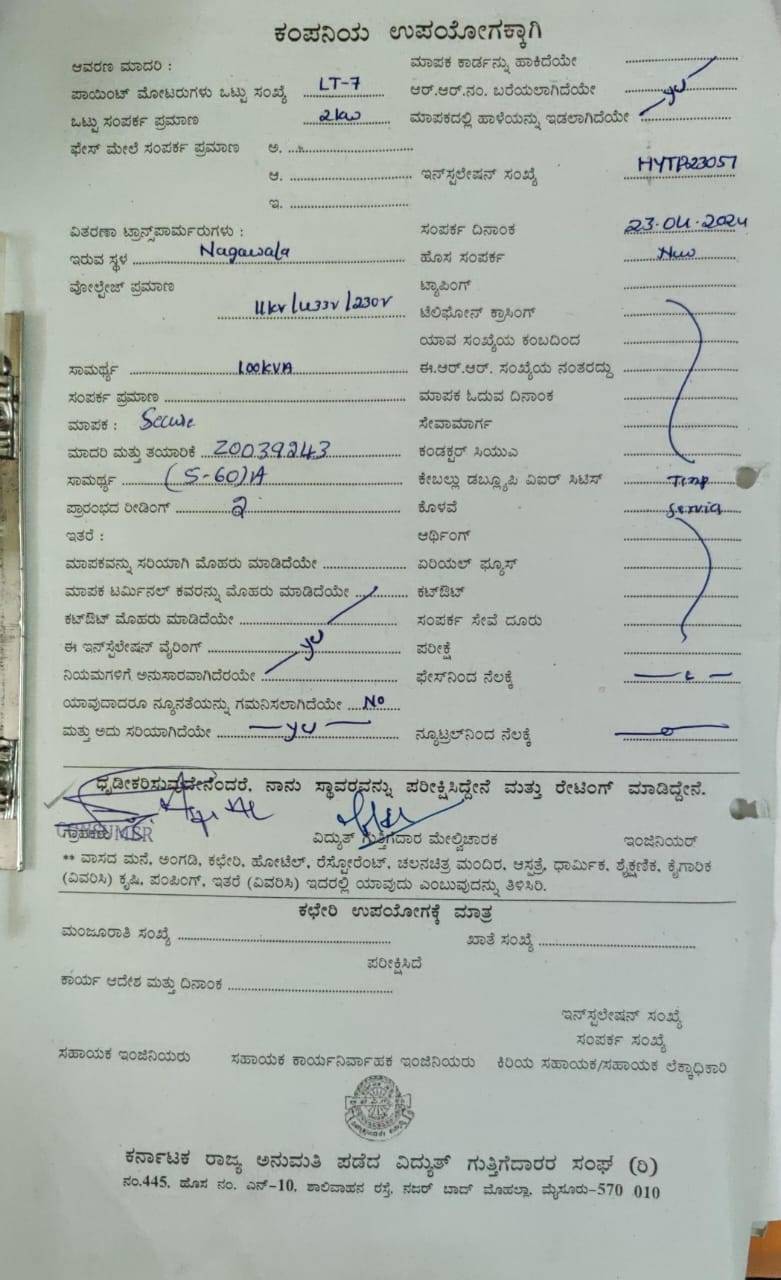 ಕಂಪನಿಯ ಉಪಯೋಗಕ್ಕಾಗಿ
ಆವರಣ ಮಾದರಿ : ಮಾಪಕ ಕಾರ್ಡನ್ನು ಹಾಕಿದೆಯೇ
ಪಾಯಿಂಟ್ ಮೋಟರುಗಳು ಒಟ್ಟು ಸಂಖ್ಯೆ LT-7 ಆರ್.ಆರ್.ನಂ. ಬರೆಯಲಾಗಿದೆಯೇ
ಒಟ್ಟು ಸಂಪರ್ಕ ಪ್ರಮಾಣ 2kw ಮಾಪಕದಲ್ಲಿ ಹಾಳೆಯನ್ನು ಇಡಲಾಗಿದೆಯೇ yes
ಫೇಸ್ ಮೇಲೆ ಸಂಪರ್ಕ ಪ್ರಮಾಣ ಅ.
ಆ. ಇನ್‌ಸ್ಪಲೇಷನ್ ಸಂಖ್ಯೆ HYTP23057
ಇ.
ವಿತರಣಾ ಟ್ರಾನ್ಸ್‌ಪಾರ್ಮರುಗಳು : ಸಂಪರ್ಕ ದಿನಾಂಕ 23.04.2024
ಇರುವ ಸ್ಥಳ Nagawala ಹೊಸ ಸಂಪರ್ಕ New
ವೋಲ್ಟೇಜ್ ಪ್ರಮಾಣ ಟ್ಯಾಪಿಂಗ್
11kv/433v/230v ಟೆಲಿಫೋನ್ ಕ್ರಾಸಿಂಗ್
ಯಾವ ಸಂಖ್ಯೆಯ ಕಂಬದಿಂದ
ಸಾಮರ್ಥ್ಯ 100kVA ಈ.ಆರ್.ಆರ್. ಸಂಖ್ಯೆಯ ನಂತರದ್ದು
ಸಂಪರ್ಕ ಪ್ರಮಾಣ ಮಾಪಕ ಓದುವ ದಿನಾಂಕ
ಮಾಪಕ : Secure ಸೇವಾಮಾರ್ಗ
ಮಾದರಿ ಮತ್ತು ತಯಾರಿಕೆ Z0039243 ಕಂಡಕ್ಟರ್ ಸಿಯುಎ
ಸಾಮರ್ಥ್ಯ (5-60)A ಕೇಬಲ್ಲು ಡಬ್ಲ್ಯೂಪಿ ವಿಐರ್ ಸಿಟಿಸ್ Temp
ಪ್ರಾರಂಭದ ರೀಡಿಂಗ್ 2 ಕೊಳವೆ Service
ಇತರೆ : ಆರ್ಥಿಂಗ್
ಮಾಪಕವನ್ನು ಸರಿಯಾಗಿ ಮೊಹರು ಮಾಡಿದೆಯೇ ಏರಿಯಲ್ ಫ್ಯೂಸ್
ಮಾಪಕ ಟರ್ಮಿನಲ್ ಕವರನ್ನು ಮೊಹರು ಮಾಡಿದೆಯೇ ಕಟ್‌ಔಟ್
ಕಟ್‌ಔಟ್ ಮೊಹರು ಮಾಡಿದೆಯೇ ಸಂಪರ್ಕ ಸೇವೆ ದೂರು
ಈ ಇನ್‌ಸ್ಟೆಲೇಷನ್ ವೈರಿಂಗ್ yes ಪರೀಕ್ಷೆ
ನಿಯಮಗಳಿಗೆ ಅನುಸಾರವಾಗಿದೆರಯೇ ಫೇಸ್‌ನಿಂದ ನೆಲಕ್ಕೆ
ಯಾವುದಾದರೂ ನ್ಯೂನತೆಯನ್ನು ಗಮನಿಸಲಾಗಿದೆಯೇ No
ಮತ್ತು ಅದು ಸರಿಯಾಗಿದೆಯೇ yes ನ್ಯೂಟ್ರಲ್‌ನಿಂದ ನೆಲಕ್ಕೆ
ಧೃಡೀಕರಿಸುವುದೇನೆಂದರೆ, ನಾನು ಸ್ಥಾವರವನ್ನು ಪರೀಕ್ಷಿಸಿದ್ದೇನೆ ಮತ್ತು ರೇಟಿಂಗ್ ಮಾಡಿದ್ದೇನೆ.
CONSUMER ವಿದ್ಯುತ್ ಗುತ್ತಿಗೆದಾರ ಮೇಲ್ವಿಚಾರಕ ಇಂಜಿನಿಯರ್
** ವಾಸದ ಮನೆ, ಅಂಗಡಿ, ಕಛೇರಿ, ಹೋಟೆಲ್, ರೆಸ್ಟೋರೆಂಟ್, ಚಲನಚಿತ್ರ ಮಂದಿರ, ಆಸ್ಪತ್ರೆ, ಧಾರ್ಮಿಕ, ಶೈಕ್ಷಣಿಕ, ಕೈಗಾರಿಕ
(ವಿವರಿಸಿ) ಕೃಷಿ, ಪಂಪಿಂಗ್, ಇತರೆ (ವಿವರಿಸಿ) ಇದರಲ್ಲಿ ಯಾವುದು ಎಂಬುವುದನ್ನು ತಿಳಿಸಿರಿ.
ಕಛೇರಿ ಉಪಯೋಗಕ್ಕೆ ಮಾತ್ರ
ಮಂಜೂರಾತಿ ಸಂಖ್ಯೆ ಖಾತೆ ಸಂಖ್ಯೆ
ಪರೀಕ್ಷಿಸಿದೆ
ಕಾರ್ಯ ಆದೇಶ ಮತ್ತು ದಿನಾಂಕ
ಇನ್‌ಸ್ಪಲೇಷನ್ ಸಂಖ್ಯೆ
ಸಂಪರ್ಕ ಸಂಖ್ಯೆ
ಸಹಾಯಕ ಇಂಜಿನಿಯರು ಸಹಾಯಕ ಕಾರ್ಯನಿರ್ವಾಹಕ ಇಂಜಿನಿಯರು ಕಿರಿಯ ಸಹಾಯಕ/ಸಹಾಯಕ ಲೆಕ್ಕಾಧಿಕಾರಿ
ಕರ್ನಾಟಕ ರಾಜ್ಯ ಅನುಮತಿ ಪಡೆದ ವಿದ್ಯುತ್ ಗುತ್ತಿಗೆದಾರರ ಸಂಘ (ರಿ)
ನಂ.445, ಹೊಸ ನಂ. ಎನ್-10, ಶಾಲಿವಾಹನ ರಸ್ತೆ, ನಜರ್ ಬಾದ್ ಮೊಹಲ್ಲಾ, ಮೈಸೂರು-570 010